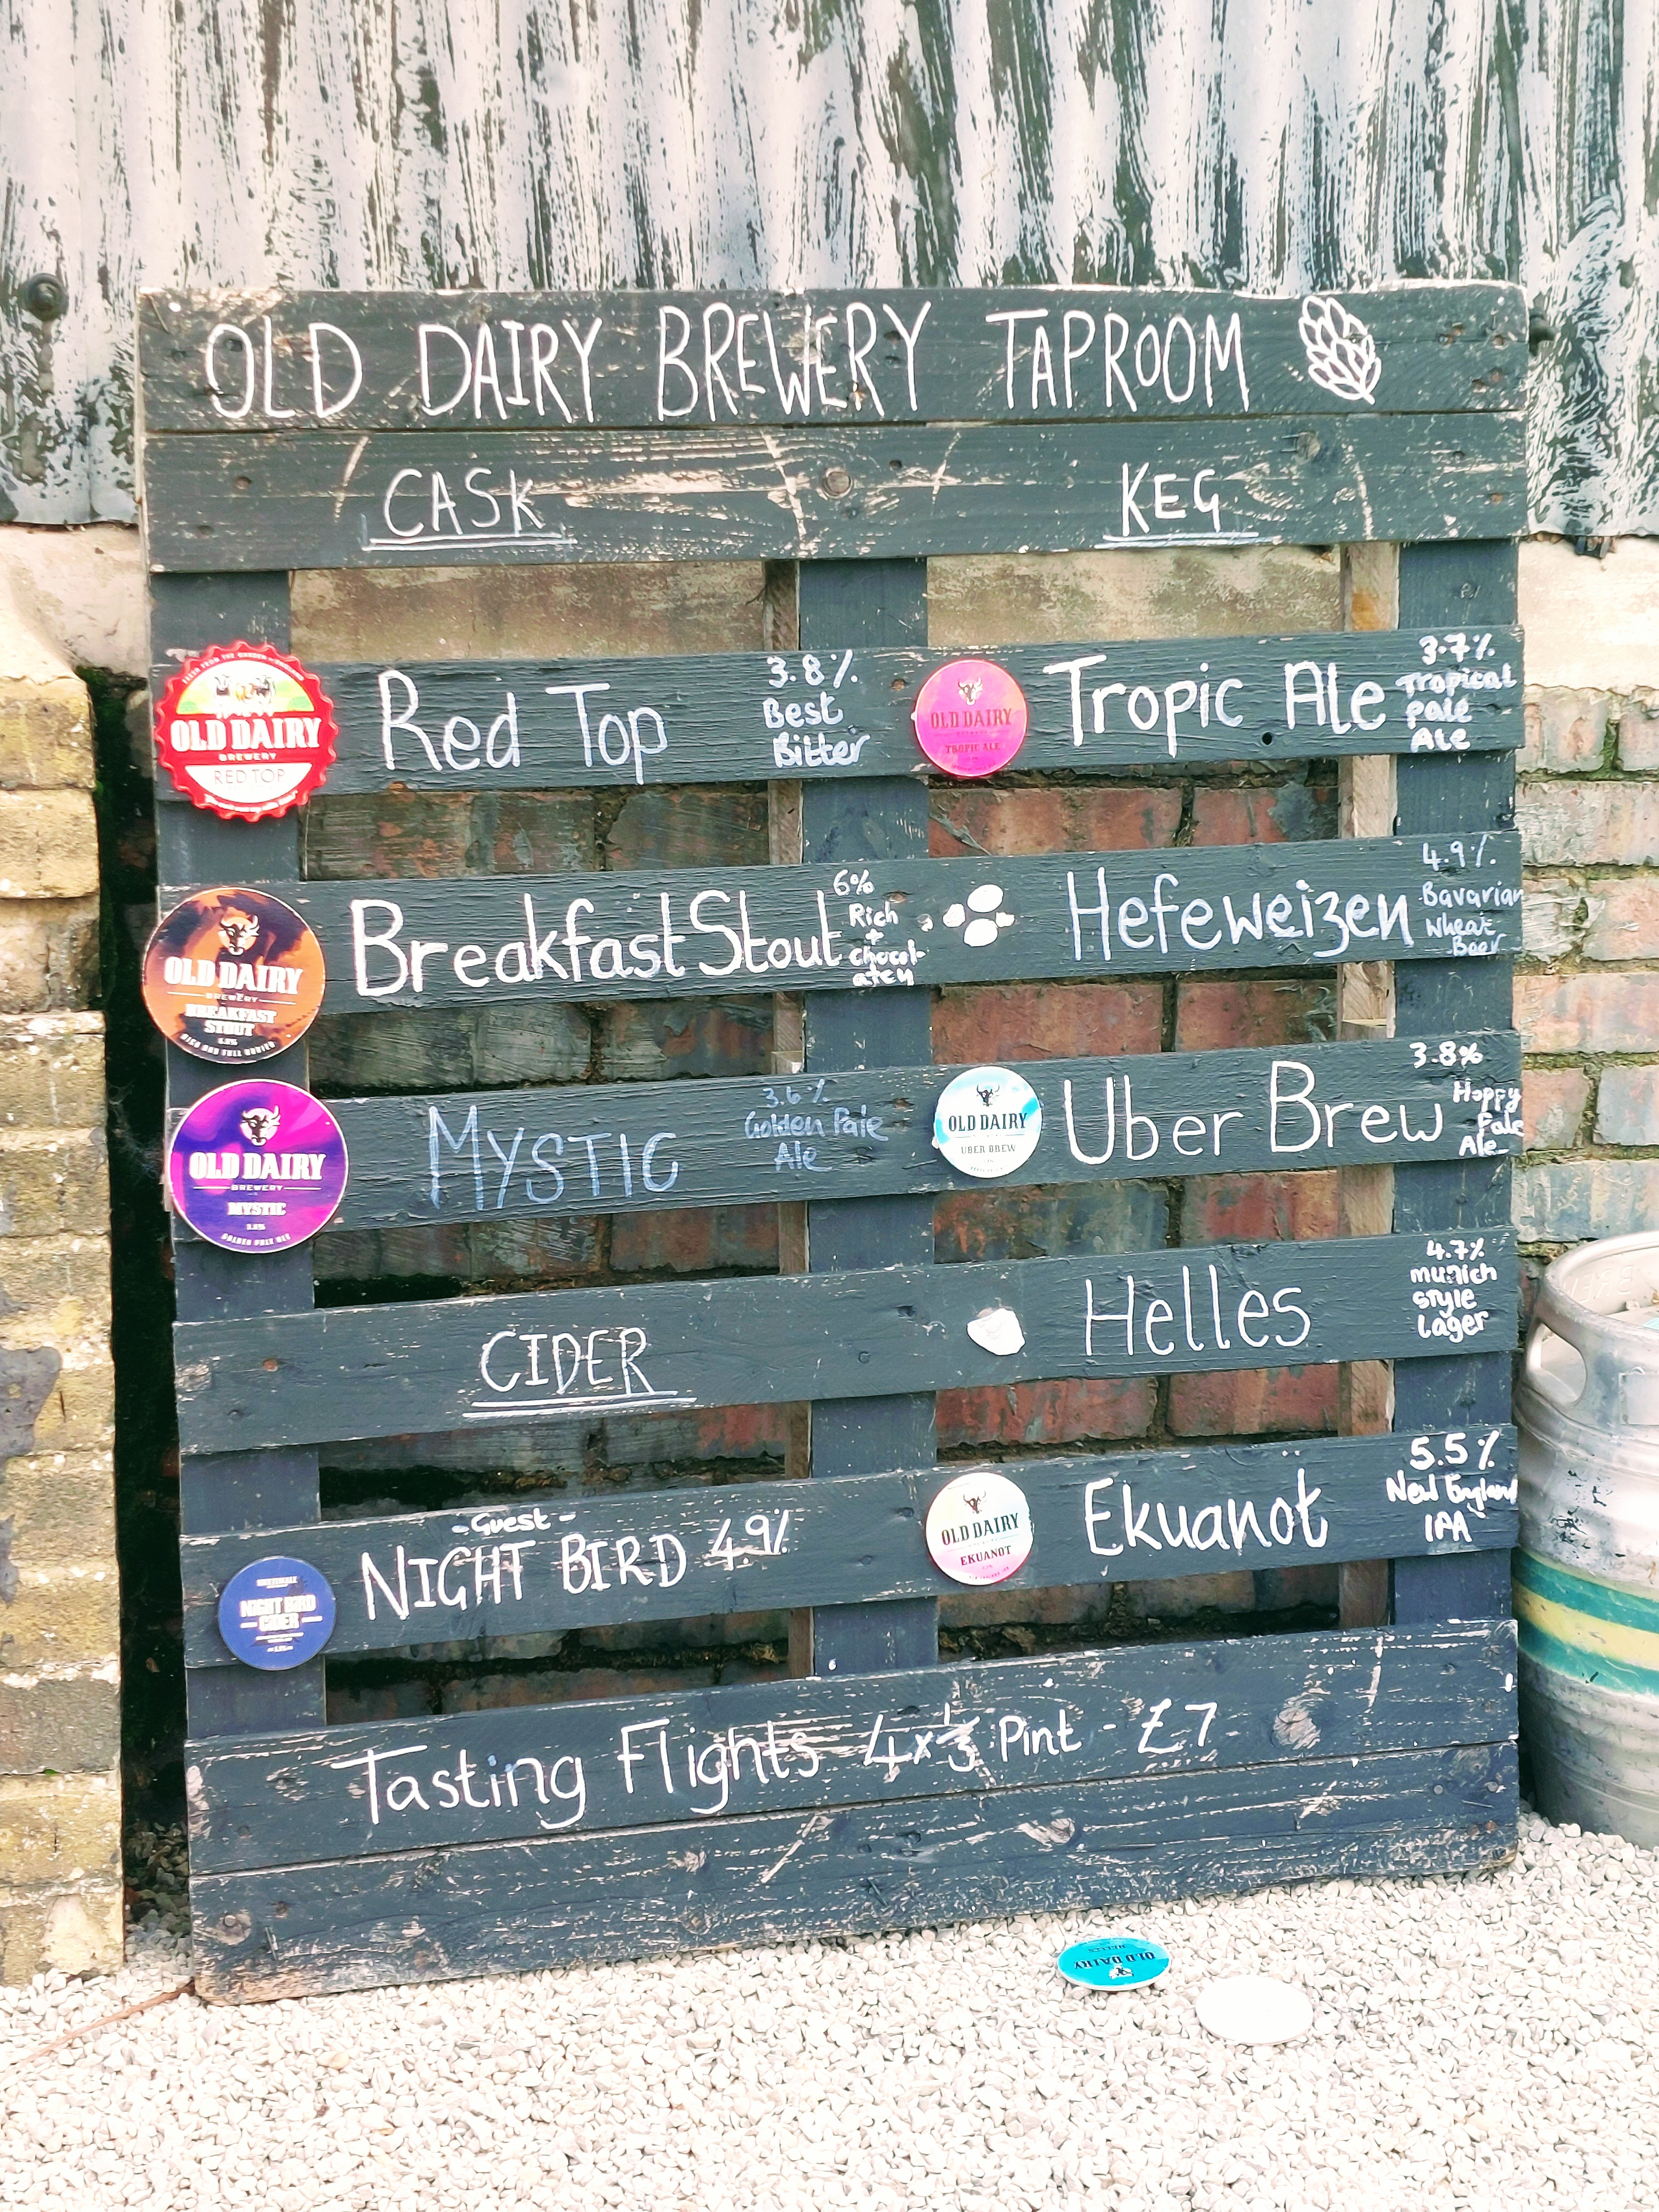 OLD DAIRY BREWERY TAPROOM
CASK
KEG
OLD DAIRY
BREWERY
RED TOP
Red Top
3.8%
Best
Bitter
OLD DAIRY
TROPIC ALE
Tropic Ale
3.7%
Tropical
pale
Ale
OLD DAIRY
BREWERY
BREAKFAST
STOUT
RICH AND FULL BODIED
Breakfast Stout
6%
Rich
+
chocol-
atey
Hefeweizen
4.9%
Bavarian
Wheat
Beer
OLD DAIRY
BREWERY
MYSTIC
GOLDEN PALE ALE
MYSTIC
3.6%
Golden Pale
Ale
OLD DAIRY
UBER BREW
Uber Brew
3.8%
Hoppy
Pale
Ale
CIDER
Helles
4.7%
munich
style
Lager
NIGHT BIRD
CIDER
-Guest-
NIGHT BIRD 4.9%
OLD DAIRY
EKUANOT
Ekuanot
5.5%
New England
IPA
Tasting Flights 4x⅓ Pint - £7
OLD DAIRY